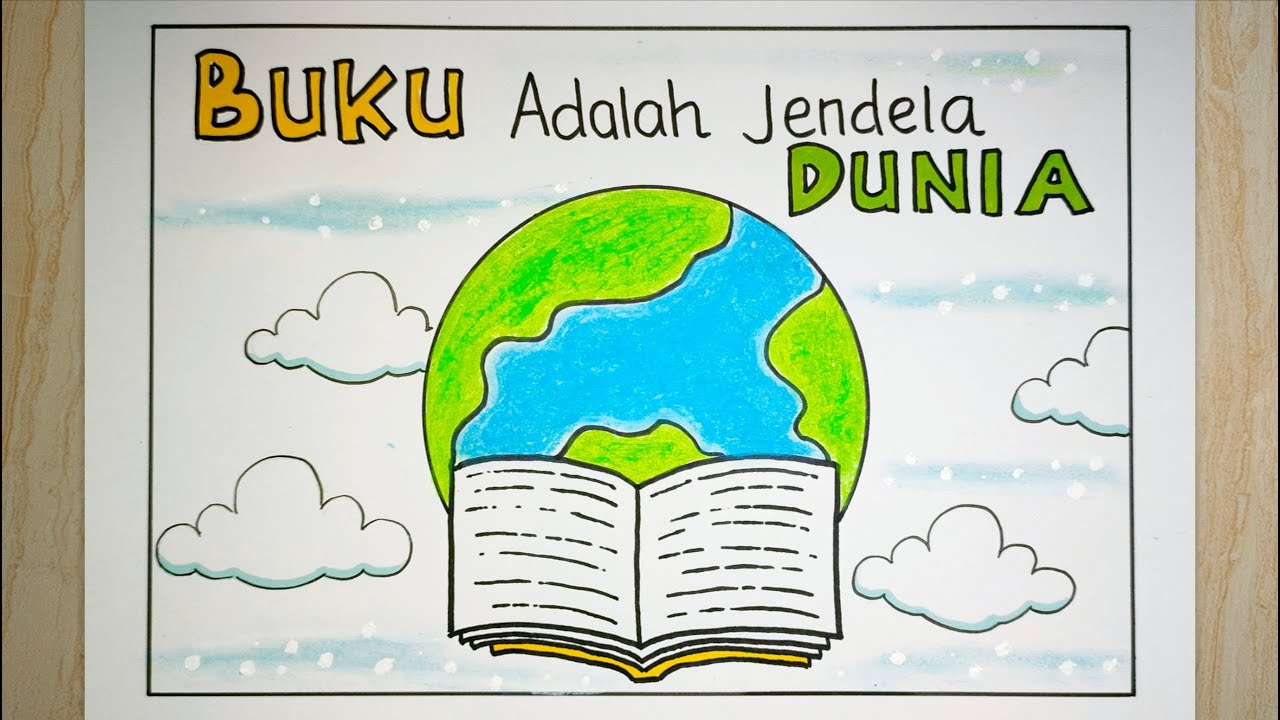 BUKU Adalah Jendela
DUNIA